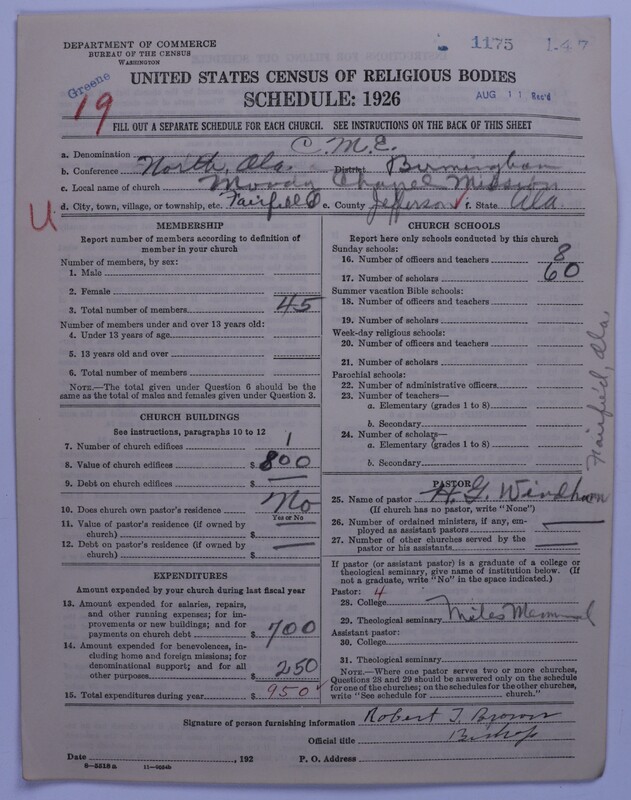 DEPARTMENT OF COMMERCE
BUREAU OF THE CENSUS
WASHINGTON
1175 1-47
Greene
19
UNITED STATES CENSUS OF RELIGIOUS BODIES
SCHEDULE: 1926
AUG 11 Rec'd
FILL OUT A SEPARATE SCHEDULE FOR EACH CHURCH. SEE INSTRUCTIONS ON THE BACK OF THIS SHEET
a. Denomination C.M.E.
b. Conference North, Ala. District Birmingham
c. Local name of church Moody Chapel Mission
U
d. City, town, village, or township, etc. Fairfield e. County Jefferson f. State Ala.
MEMBERSHIP
Report number of members according to definition of
member in your church
Number of members, by sex:
1. Male
2. Female
3. Total number of members 45
Number of members under and over 13 years old:
4. Under 13 years of age
5. 13 years old and over
6. Total number of members
NOTE.—The total given under Question 6 should be
same as the total of males and females given under Question 3.
CHURCH BUILDINGS
See instructions, paragraphs 10 to 12
7. Number of church edifices 1
8. Value of church edifices $ 800
9. Debt on church edifices $
10. Does church own pastor's residence No
Yes or No
11. Value of pastor's residence (if owned by
church) $
12. Debt on pastor's residence (if owned by
church) $
EXPENDITURES
Amount expended by your church during last fiscal year
13. Amount expended for salaries, repairs,
and other running expenses; for im-
provements or new buildings; and for
payments on church debt $ 700
14. Amount expended for benevolences, in-
cluding home and foreign missions; for
denominational support; and for all
other purposes $ 250
15. Total expenditures during year $ 950
CHURCH SCHOOLS
Report here only schools conducted by this church
Sunday schools:
16. Number of officers and teachers 8
17. Number of scholars 60
Summer vacation Bible schools:
18. Number of officers and teachers
19. Number of scholars
Week-day religious schools:
20. Number of officers and teachers
21. Number of scholars
Parochial schools:
22. Number of administrative officers
23. Number of teachers—
a. Elementary (grades 1 to 8)
b. Secondary
24. Number of scholars—
a. Elementary (grades 1 to 8)
b. Secondary
Fairfield, Ala.
PASTOR
25. Name of pastor H. G. Windham
(If church has no pastor, write "None")
26. Number of ordained ministers, if any, em-
ployed as assistant pastors
27. Number of other churches served by the
pastor or his assistants
If pastor (or assistant pastor) is a graduate of a college or
theological seminary, give name of institution below. (If
not a graduate, write "No" in the space indicated.)
Pastor: 4
28. College
29. Theological seminary Miles Memorial
Assistant pastor:
30. College
31. Theological seminary
NOTE.—Where one pastor serves two or more churches,
Questions 28 and 29 should be answered only on the schedule
for one of the churches; on the schedules for the other churches,
write "See schedule for church."
Signature of person furnishing information Robert T. Brown
Official title Bishop
Date , 192 P. O. Address
8—5518a 11—9024b